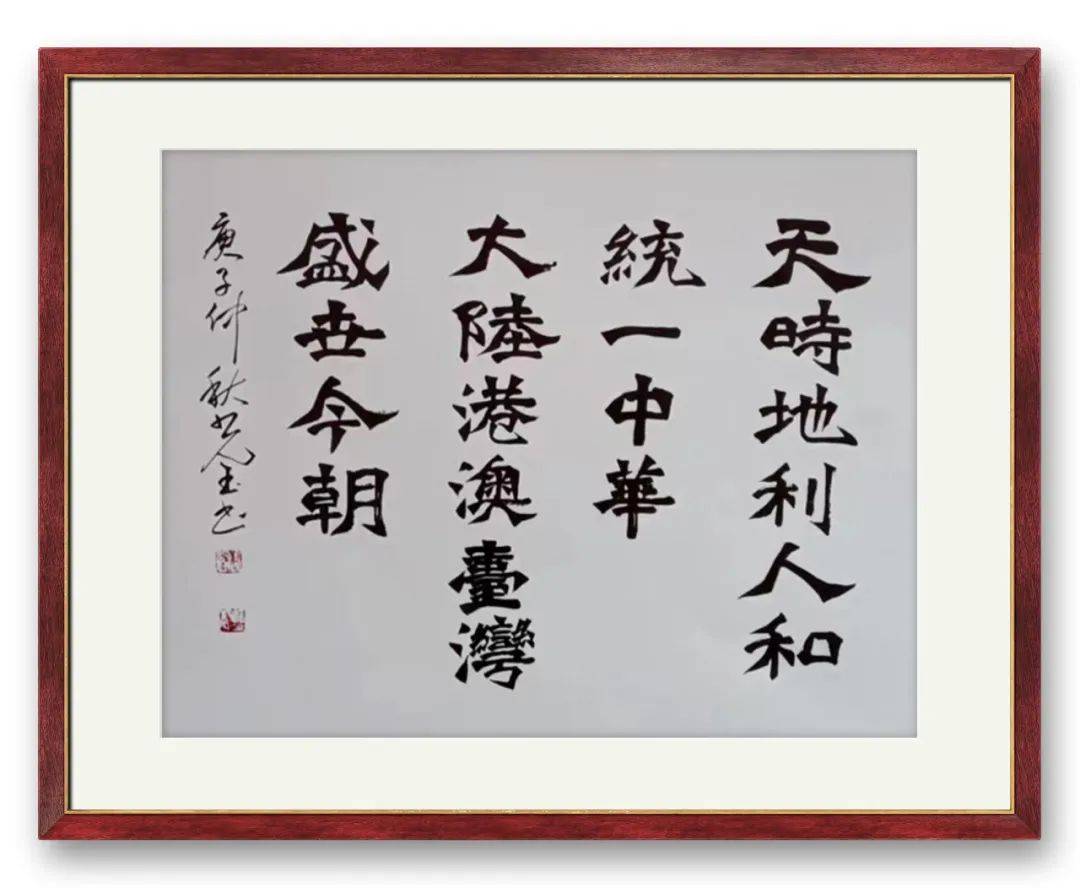 天時地利人和
統一中華
大陸港澳臺灣
盛世今朝
庚子仲秋金玉书